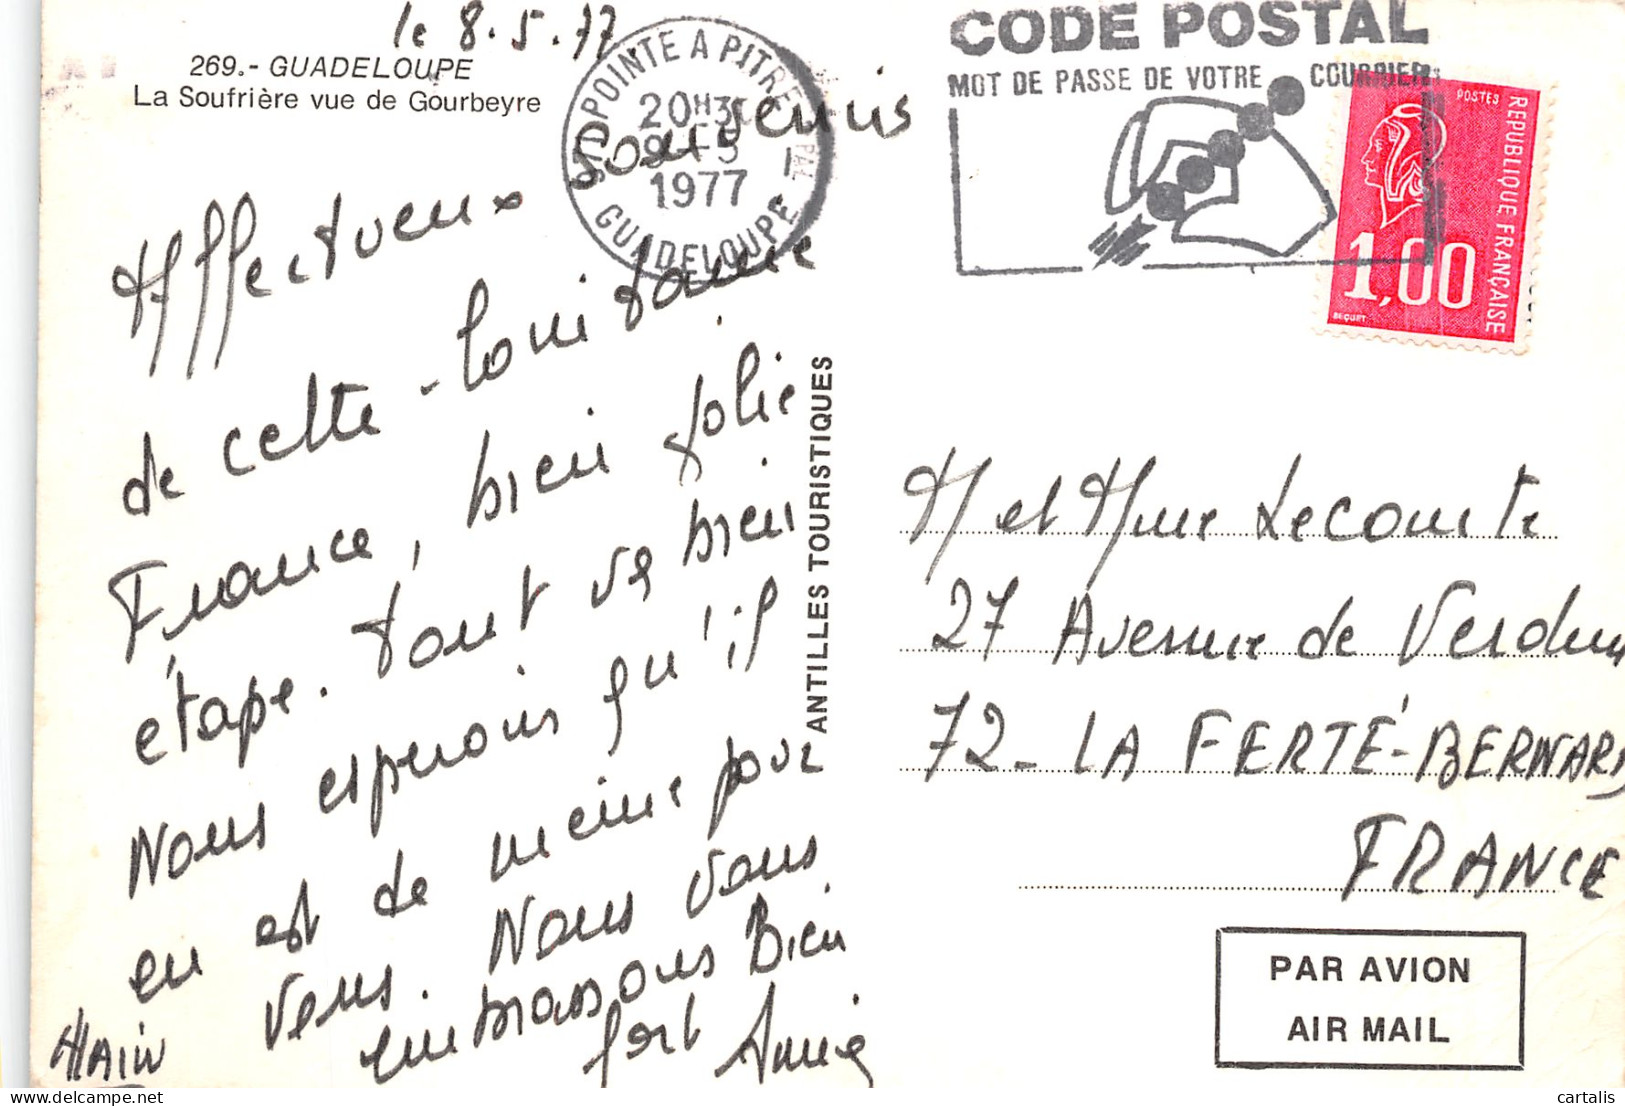 le 8.5.77
269.- GUADELOUPE
La Soufrière vue de Gourbeyre
POINTE A PITRE PAL
20H30
9-5
1977
GUADELOUPE
CODE POSTAL
MOT DE PASSE DE VOTRE COURRIER
POSTES
REPUBLIQUE FRANÇAISE
1,00
BEQUET
Affectueux souvenirs
de cette lointaine
France, bien jolie
étape. Tout va bien
Nous espérons qu'il
en est de même pour
vous. Nous vous
embrassons Bien
fort Annie
Alain
ANTILLES TOURISTIQUES
M et Mme Lecomte
27 Avenue de Verdun
72 - LA FERTÉ-BERNARD
FRANCE
PAR AVION
AIR MAIL
cartalis